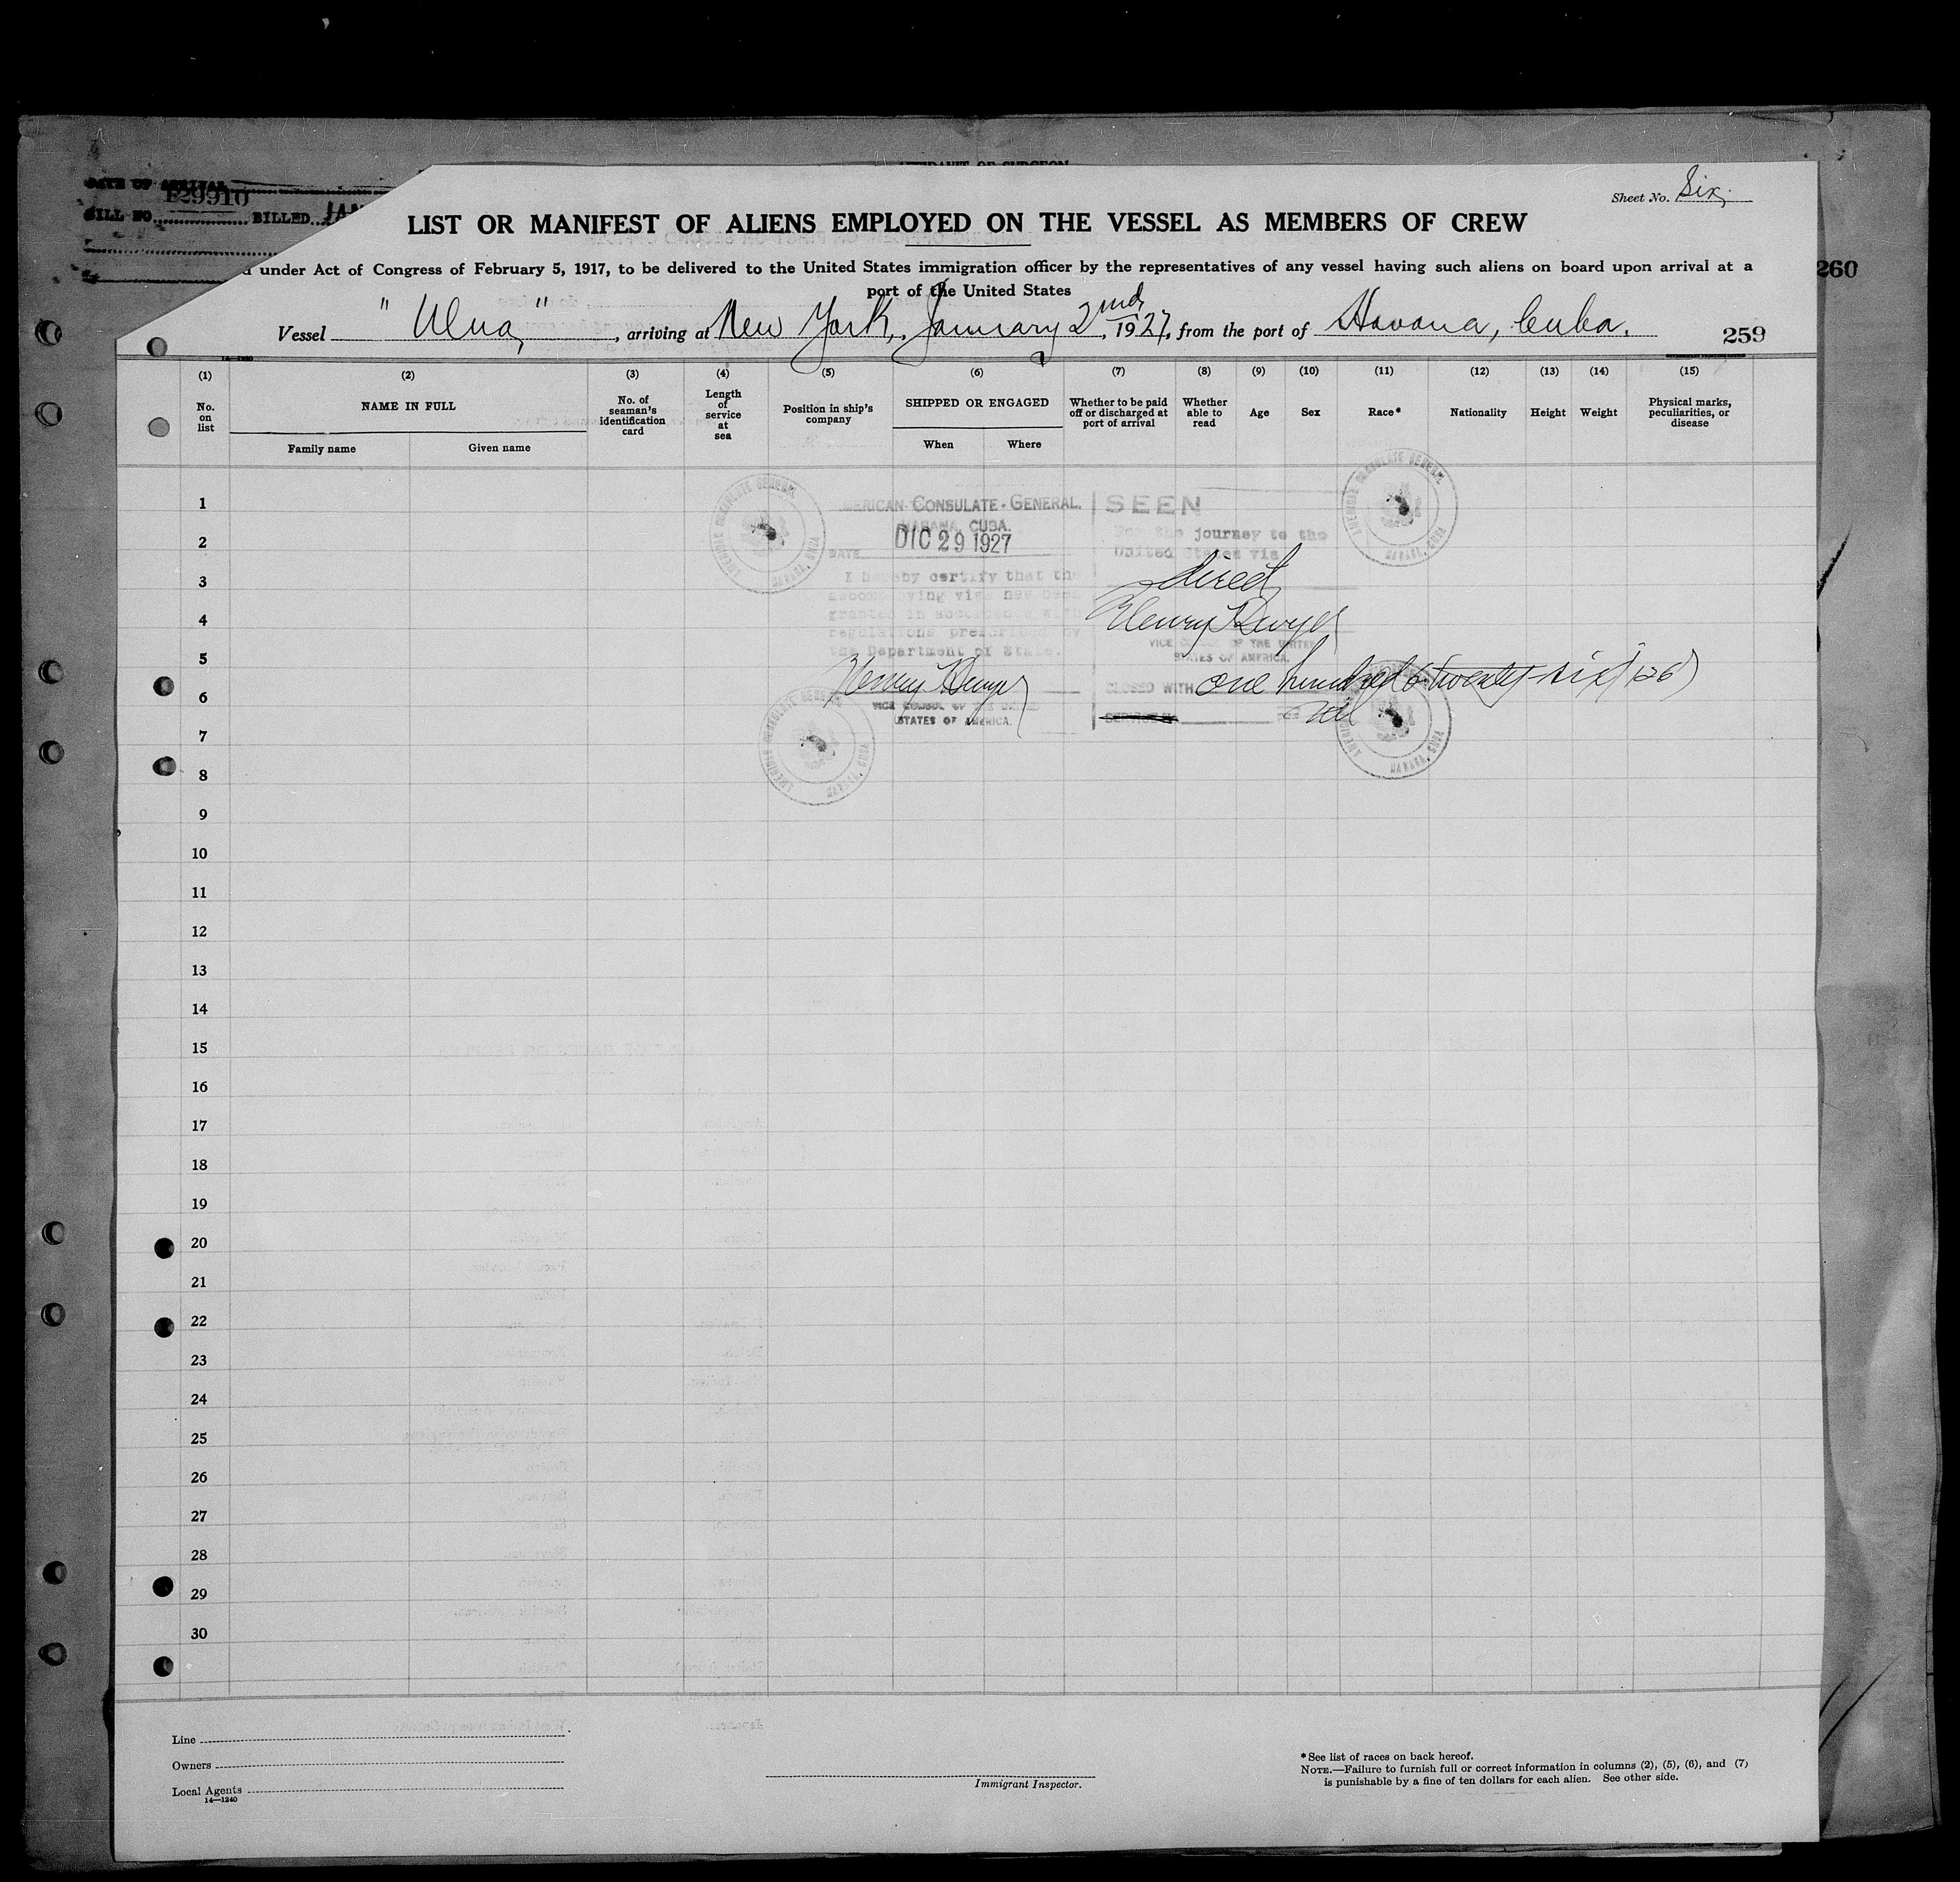 Sheet No. Six
DATE OF ARRIVAL
E29910
BILL NO. BILLED JAN
LIST OR MANIFEST OF ALIENS EMPLOYED ON THE VESSEL AS MEMBERS OF CREW
under Act of Congress of February 5, 1917, to be delivered to the United States immigration officer by the representatives of any vessel having such aliens on board upon arrival at a
port of the United States
260
Vessel "Ulua", arriving at New York, January 2nd, 1927, from the port of Havana, Cuba.
259
(1) (2) (3) (4) (5) (6) (7) (8) (9) (10) (11) (12) (13) (14) (15)
No. on list
NAME IN FULL
Family name
Given name
No. of seaman's identification card
Length of service at sea
Position in ship's company
SHIPPED OR ENGAGED
When
Where
Whether to be paid off or discharged at port of arrival
Whether able to read
Age
Sex
Race*
Nationality
Height
Weight
Physical marks, peculiarities, or disease
AMERICAN CONSULATE GENERAL
HABANA, CUBA
AMERICAN CONSULATE - GENERAL.
HABANA, CUBA.
DATE DIC 29 1927
I hereby certify that the
accompanying visa has been
granted in accordance with
regulations prescribed by
the Department of State.
Henry T Dwyer
VICE CONSUL OF THE UNITED
STATES OF AMERICA.
SEEN
For the journey to the
United States via
direct
Henry T Dwyer
VICE CONSUL OF THE UNITED
STATES OF AMERICA.
CLOSED WITH one hundred & twenty-six (126)
SERVICE No.
AMERICAN CONSULATE GENERAL
HABANA, CUBA
AMERICAN CONSULATE GENERAL
HABANA, CUBA
AMERICAN CONSULATE GENERAL
HABANA, CUBA
1
2
3
4
5
6
7
8
9
10
11
12
13
14
15
16
17
18
19
20
21
22
23
24
25
26
27
28
29
30
Line
Owners
Local Agents
14—1240
Immigrant Inspector.
*See list of races on back hereof.
NOTE.—Failure to furnish full or correct information in columns (2), (5), (6), and (7)
is punishable by a fine of ten dollars for each alien. See other side.